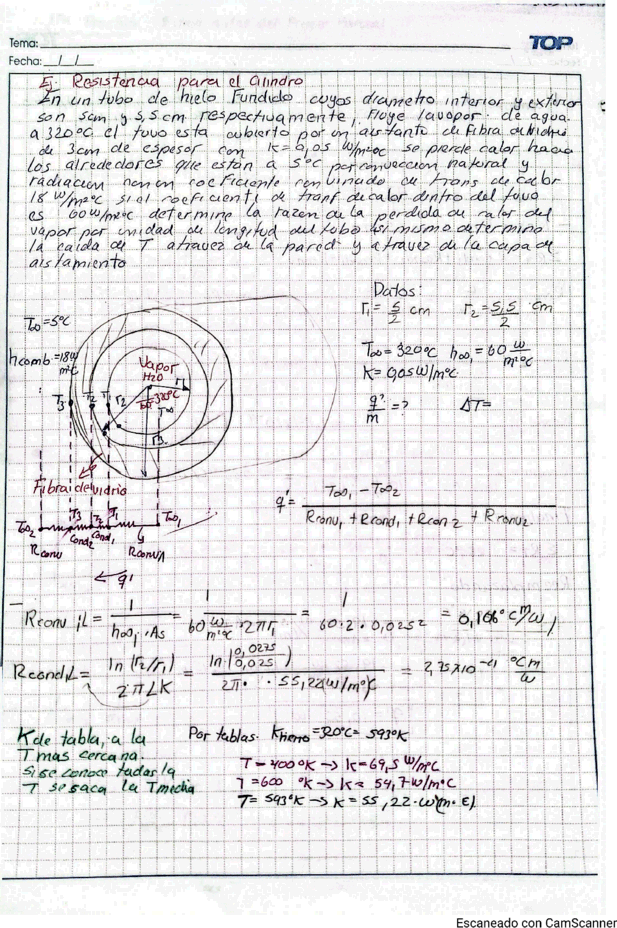 Tema:
TOP
Fecha: / /
Ej. Resistencia para el Cilindro
En un tubo de hielo Fundido cuyos diametro interior y exterior
son 5cm y 5,5cm respectivamente, Fluye lavapor de agua
a 320°C el tuvo esta cubierto por un aistante de Fibra de Vidrio
de 3cm de espesor con K=0,05 W/m²°C se pierde calor hacia
Los alrededores que estan a 5°C por conveccion natural y
radiacion con un coeficiente convinado de trans de calor
18 W/m²°C si el coeficiente de transf de calor dentro del tuvo
es 60 W/m²°C determine la razon de la perdida de calor del
vapor por unidad de longitud del tubo así mismo determine
la caida de T atravez de la pared y atravez de la capa de
aistamiento
Datos:
r₁ = 5/2 cm r₂ = 5,5/2 cm
T∞ = 5°C
T∞ = 320°C h∞₁ = 60 W/m²°C
hcomb = 18 W/m²°C
K = 0,05 W/m°C
q°/m = ? ΔT=
Vapor
H₂O
r₁
320°C
T∞
T3 T2 T1 r2
r3
Fibra de vidrio
q° = T∞₁ - T∞₂ / Rconv₁ + Rcond₁ + Rcon2 + Rconv2
T∞₂ T3 T2 T1 T∞₁
Rconv Cond2 Cond1 Rconv1
q'
Rconv₁L = 1/h∞₁.As = 1/60 W/m²°C 2πr₁ = 1/60·2·0,0252 = 0,106°Cm/W
Rcond₁L = ln(r₂/r₁)/2πLK = ln(0,0275/0,025)/2π· · 55,22W/m°K = 2,75x10⁻⁴ °Cm/W
K de tabla, a la
T mas cercana.
Si se conoce todas la
T se saca la T media
Por tablas. Khierro = 320°C = 593°K
T = 400°K → k = 69,5 W/m°C
T = 600 °K → k = 54,7 W/m°C
T = 593°K → K = 55,22·W
Escaneado con CamScanner